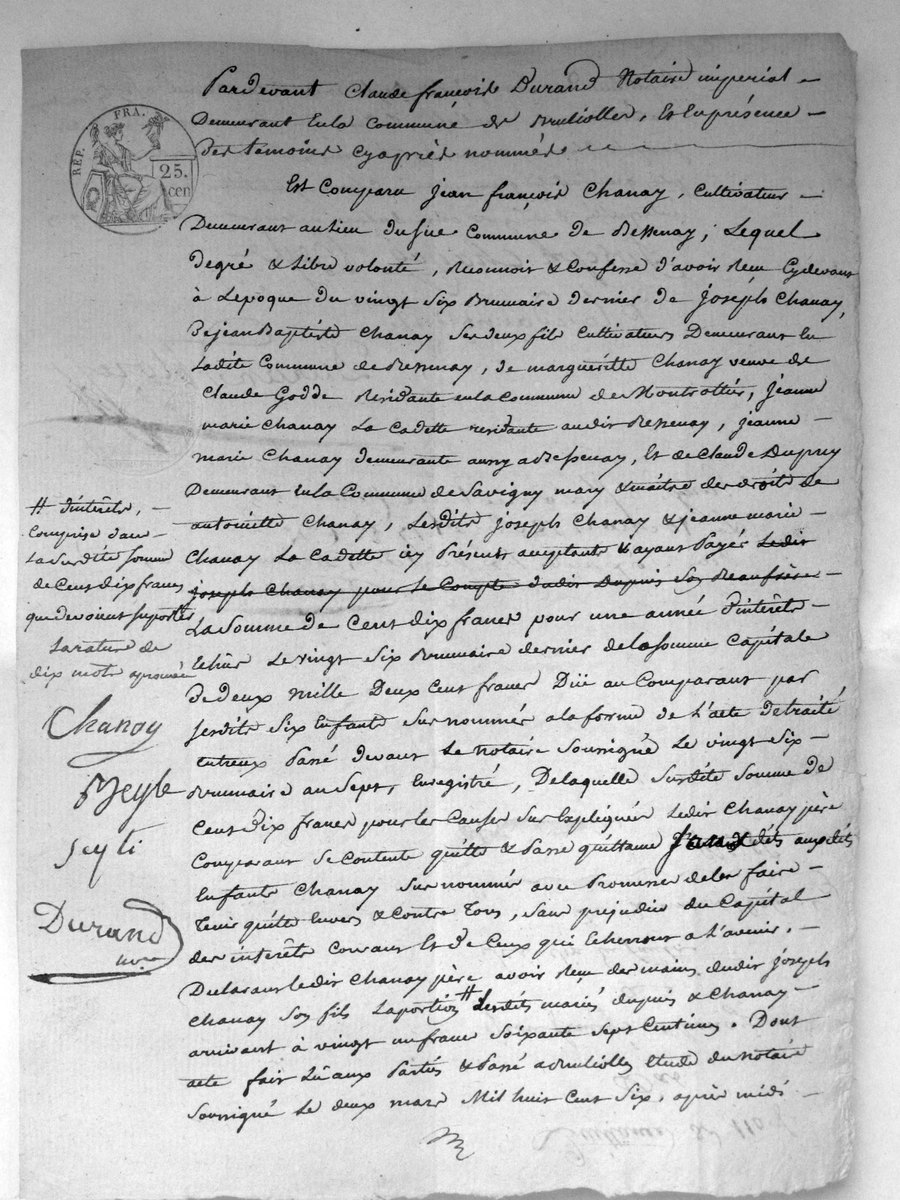 REP. FRA.
25.
cen
Pardevant Claude françois Durand Notaire imperial
Demeurant en la Commune de Bruliolles, et en présence
Des temoins cyaprès nommés
Est Comparu jean françois Chanay, Cultivateur
Demeurant au lieu Commune de Bessenay, Lequel
de gré & libre volonté, Reconnoit & Confesse d'avoir Reçu Cydevant
à Lepoque du vingt Six Brumaire dernier de joseph Chanay,
De jean Baptiste Chanay Ses deux fils Cultivateurs Demeurant En
Ladite Commune de Bessenay, de marguéritte Chanay veuve de
Claude Godde Residante en la Commune de Montrottier, jeanne
marie Chanay La Cadette residante audit Bessenay, jeanne
marie Chanay demeurante aussy a Bessenay, Et de Claude Dupuy
Demeurant En la Commune de Savigny mary & maitre des droits de
antoinette Chanay, Lesdits joseph Chanay & jeanne marie
Chanay La Cadette icy Présents acceptants & ayant Payés Ledit
joseph Chanay pour le Compte dudit Dupuis Son Beaufrère
La Somme de Cent dix francs pour une année d'intérêts
Echus Le vingt Six Brumaire dernier de la Somme Capitale
De deux mille Deux Cent francs Düe au Comparant par
Lesdits Six Enfants Sur nommés a la forme de L'acte de traité
entreux Passé devant Le notaire Soussigné Le vingt Six
Brumaire an Sept, Enregistré, De laquelle Susdite Somme de
Cent dix francs pour les Causes Sur Expliquées Ledit Chanay père
Comparant Se Contente quitte & Passe quittance auxdits
Enfants Chanay Sur nommés avec Promesse de les faire
Tenir quitte Envers & Contre Tous, Sans préjudice du Capital
des intérêts Courants Et de Ceux qui Echerront a L'avenir.
Declarant Ledit Chanay père avoir Reçu des mains dudit joseph
Chanay Son fils La portion # desdits mariés dupuis & Chanay
arrivant à vingt un francs Soixante Sept Centimes. Dont
acte fait Lû aux Parties & Passé a Bruliolles etude du notaire
Soussigné Le deux mars Mil huit Cent Six, après midi
# d'intérêts,
Comprise dans
La Susdite Somme
de Cent dix francs
que devoient Suporter
La rature de
dix mots aprouvée
Chanay
Durand